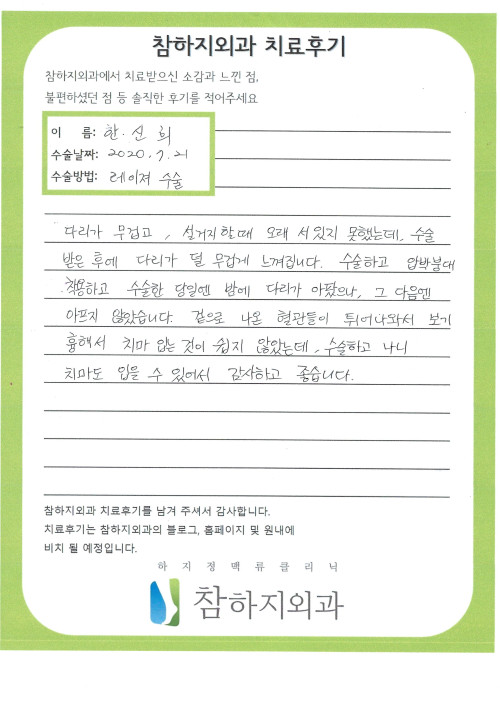 참하지외과 치료후기
참하지외과에서 치료받으신 소감과 느낀 점,
불편하셨던 점 등 솔직한 후기를 적어주세요
이 름: 한.신희
수술날짜: 2020.7.21
수술방법: 레이져 수술
다리가 무겁고, 설거지할때 오래 서있지 못했는데, 수술
받은 후에 다리가 덜 무겁게 느껴집니다. 수술하고 압박붕대
착용하고 수술한 당일엔 밤에 다리가 아팠으나, 그 다음엔
아프지 않았습니다. 겉으로 나온 혈관들이 튀어나와서 보기
흉해서 치마 입는 것이 쉽지 않았는데, 수술하고 나니
치마도 입을 수 있어서 감사하고 좋습니다.
참하지외과 치료후기를 남겨 주셔서 감사합니다.
치료후기는 참하지외과의 블로그, 홈페이지 및 원내에
비치 될 예정입니다.
하지정맥류클리닉
참하지외과